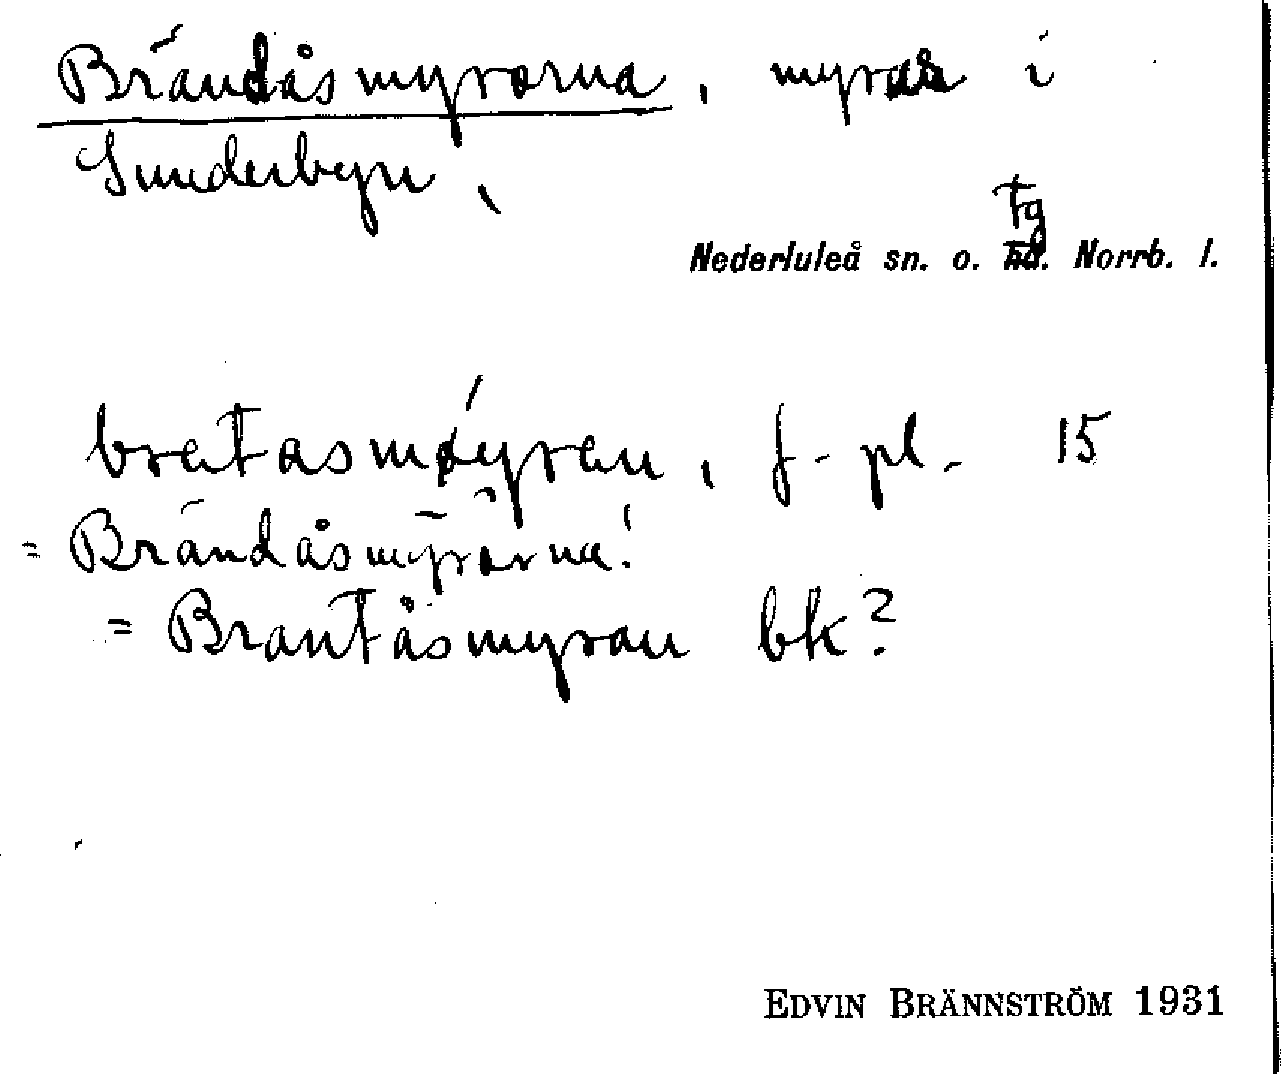 Brändåsmyrarna, myrar i
Sunderbyn,
tg
Nederluleå sn. o. hd. Norrb. l.
bratasmøyran, f. pl. 15
= Brändåsmyrarna!
= Brantåsmyran bk?
EDVIN BRÄNNSTRÖM 1931